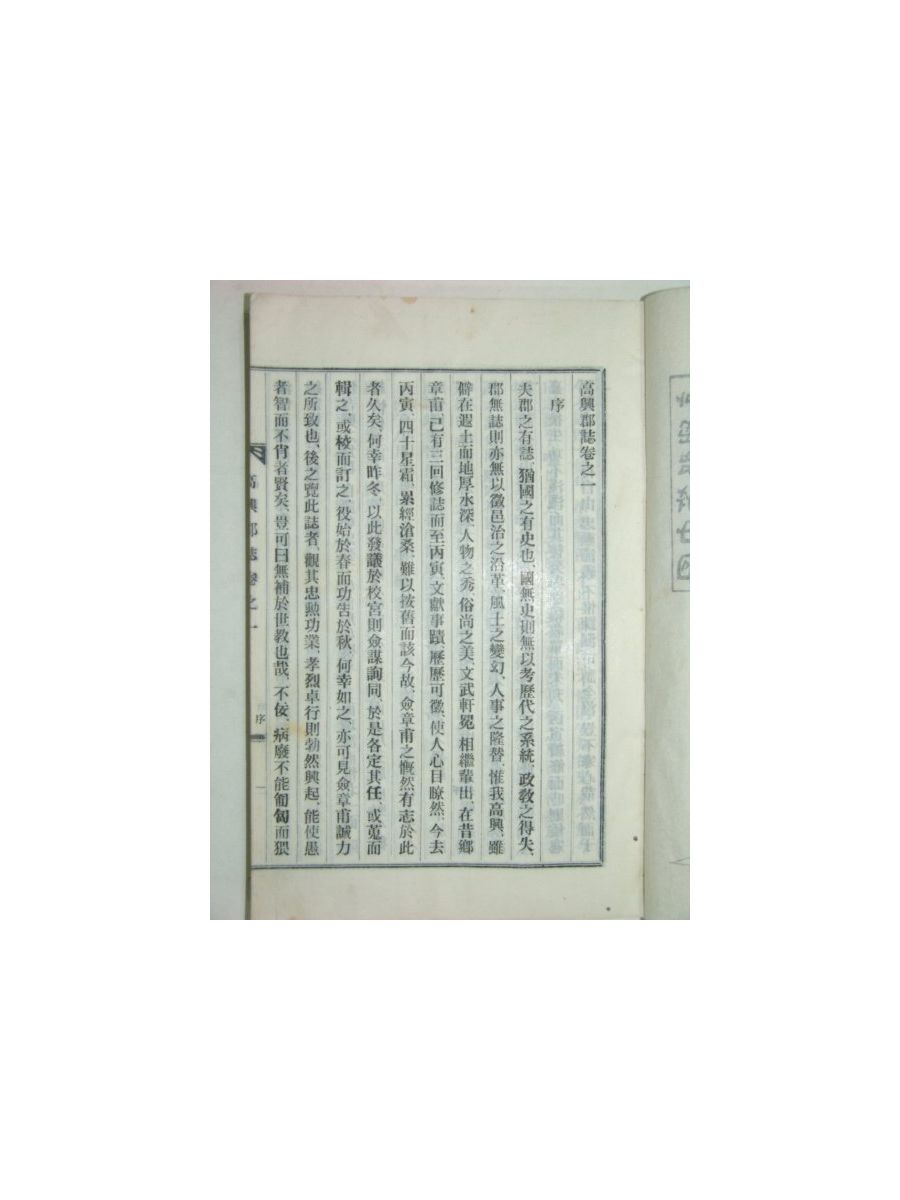 高興郡誌卷之一
序
夫郡之有誌、猶國之有史也、國無史則無以考歷代之系統、政敎之得失、
郡無誌則亦無以徵邑治之沿革、風土之變幻、人事之隆替、惟我高興、雖
僻在遐土而地厚水深、人物之秀、俗尙之美、文武軒冕、相繼輩出、在昔鄕
章甫、已有三回修誌而至丙寅、文獻事蹟、歷歷可徵、使人心目瞭然、今去
丙寅、四十星霜、累經滄桑、難以按舊而該今故、僉章甫之慨然有志於此
者久矣、何幸昨冬、以此發議於校宮則僉謀詢同、於是各定其任、或蒐而
輯之、或校而訂之、役始於春而功告於秋、何幸如之、亦可見僉章甫誠力
之所致也、後之覽此誌者、觀其忠勳功業、孝烈卓行則勃然興起、能使愚
者智而不肖者賢矣、豈可曰無補於世敎也哉、不佞、病廢不能匍匐而猥
高興郡誌卷之一
序
一